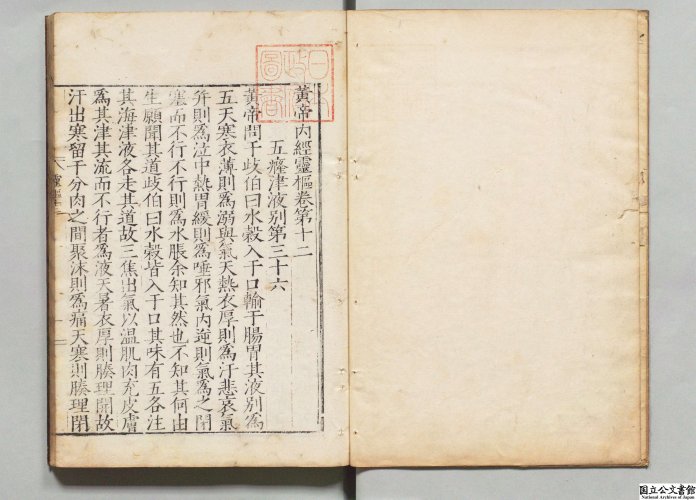 黃帝內經靈樞卷第十二
五癃津液別第三十六
黃帝問于歧伯曰水穀入于口輸于腸胃其液別為
五天寒衣薄則為溺與氣天熱衣厚則為汗悲哀氣
并則為泣中熱胃緩則為唾邪氣內逆則氣為之閉
塞而不行不行則為水脹余知其然也不知其何由
生願聞其道歧伯曰水穀皆入于口其味有五各注
其海津液各走其道故三焦出氣以溫肌肉充皮膚
為其津其流而不行者為液天暑衣厚則腠理開故
汗出寒留于分肉之間聚沫則為痛天寒則腠理閉
国立公文書館
National Archives of Japan